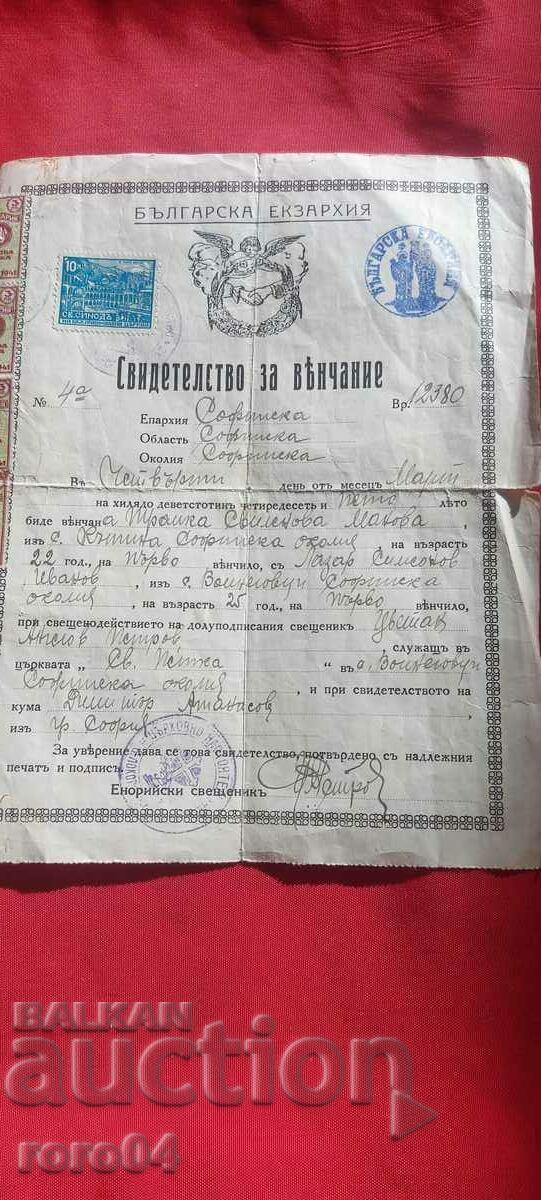 БЪЛГАРСКА ЕКЗАРХИЯ
БЪЛГАРСКА ЕКЗАРХИЯ
10 ЛВ.
СВ. СИНОДЪ
1941
Свидетелство за вѣнчание
№ 4а Вр. 12380
Епархия Софийска
Область Софийска
Околия Софийска
Въ Четвърти день отъ месецъ Мартъ
на хилядо деветстотинъ четиридесеть и пето лѣто
биде вѣнчана Трайка Симеонова Манова,
изъ с. Кътина Софийска околия на възрасть
22 год., на първо вѣнчило, съ Лазар Симеонов
Иванов, изъ с. Войнеговци Софийска
околия, на възрасть 25 год., на първо вѣнчило,
при свещенодействието на долуподписания свещеникъ Цветан
Ангелов Петров, служащъ въ
църквата „Св. Петка" въ с. Войнеговци
Софийска околия, и при свидетелството на
кума Димитър Атанасов
изъ гр. София
За увѣрение дава се това свидетелство, потвърдено съ надлежния
печатъ и подписъ.
Енорийски свещеникъ
BALKAN
auction
roro04